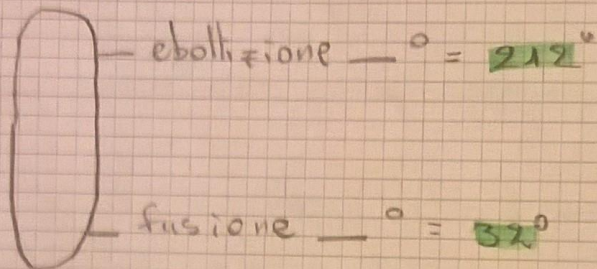 ebollizione __° = 212°
fusione __° = 32°